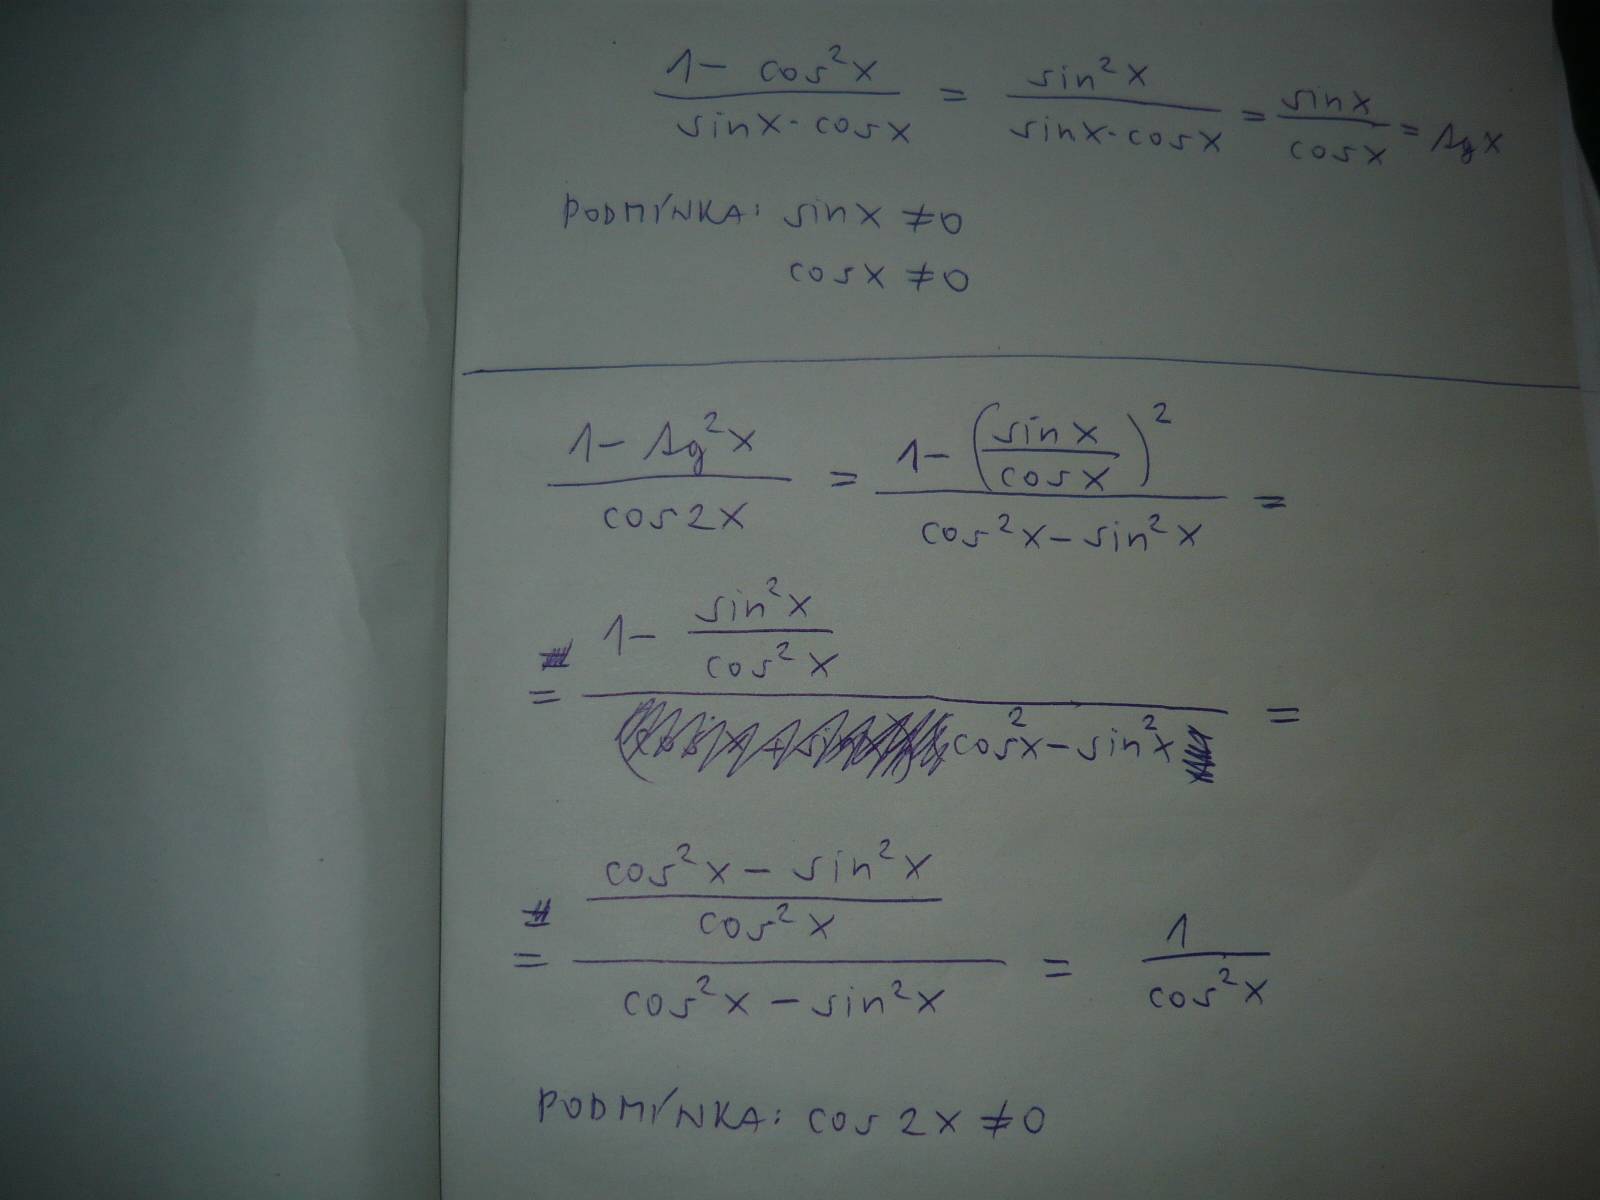 1 - cos²x / sinx·cosx = sin²x / sinx·cosx = sinx / cosx = tgx
PODMÍNKA: sinx ≠ 0
cosx ≠ 0
1 - tg²x / cos2x = 1 - (sinx / cosx)² / cos²x - sin²x =
= 1 - sin²x / cos²x / cos²x - sin²x =
= cos²x - sin²x / cos²x / cos²x - sin²x = 1 / cos²x
PODMÍNKA: cos2x ≠ 0